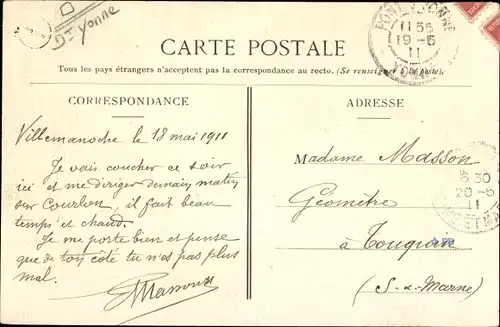 Dt Yonne
PONT S/YONNE
11 55
19-5
11
YONNE
CARTE POSTALE
Tous les pays étrangers n'acceptent pas la correspondance au recto. (Se renseigner à la poste)
CORRESPONDANCE
ADRESSE
Villemanoche le 18 mai 1911
Je vais coucher ce soir
ici et me diriger demain matin
sur Courlon, il fait beau
temps et chaud.
Je me porte bien et pense
que de ton côté tu n'es pas plus
mal.
Masson
Madame Masson
Géomètre
à Touquin
(S-&-Marne)
6 30
20-5
11
SEINE ET MARNE